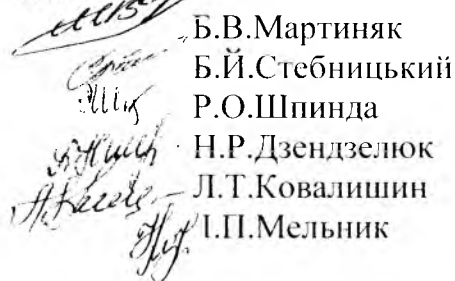 Б.В.Мартиняк
Б.Й.Стебницький
Р.О.Шпинда
Н.Р.Дзендзелюк
Л.Т.Ковалишин
І.П.Мельник